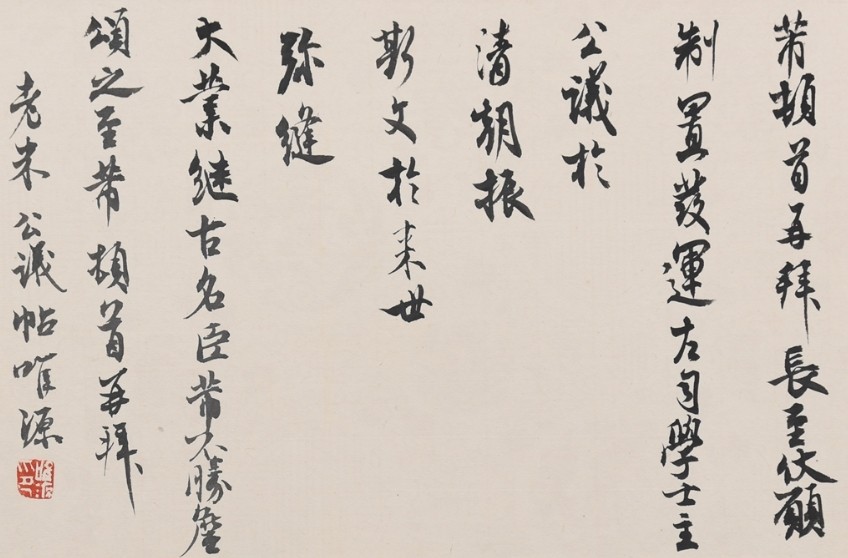 芾頓首再拜長至伏願
制置發運左司學士主
公議於
清朝振
斯文於來世
弥縫
大業继古名臣芾不勝詹
頌之至芾頓首再拜
老米公議帖唯源